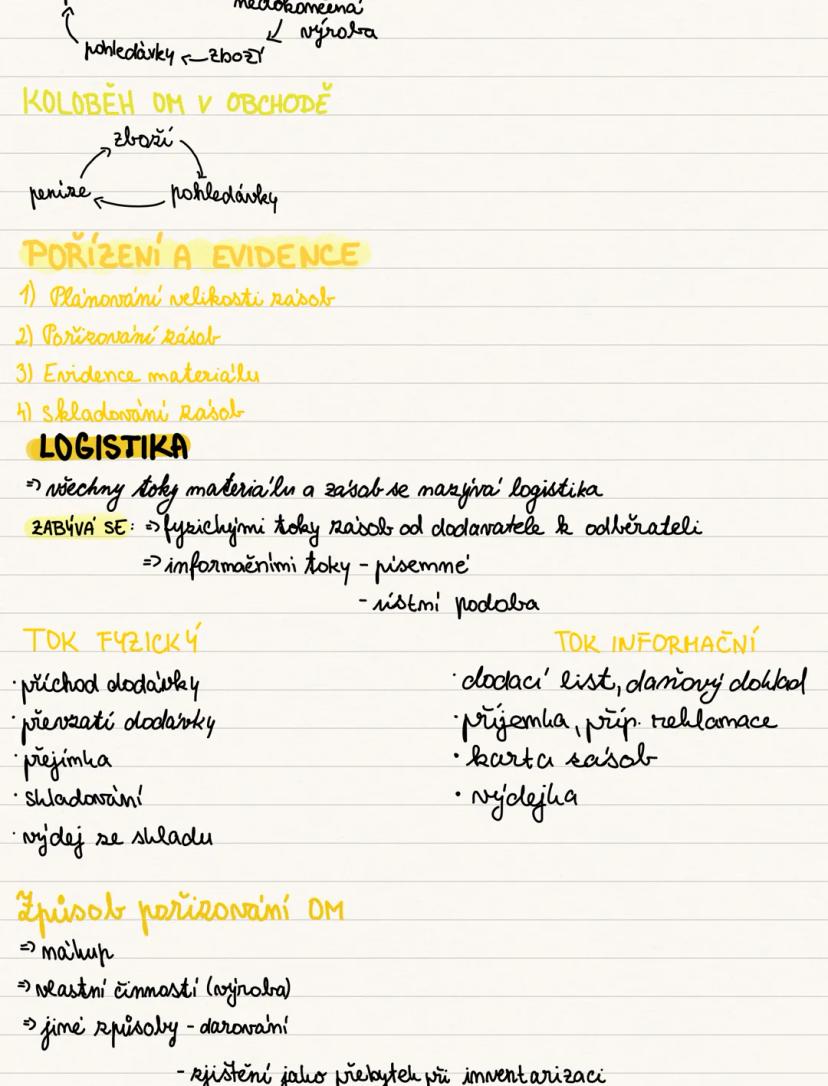 nedokončená
výroba
pohledávky ← zboží
KOLOBĚH OM V OBCHODĚ
zboží
peníze
pohledávky
POŘÍZENÍ A EVIDENCE
1) Plánování velikosti zásob
2) Pořizování zásob
3) Evidence materiálu
4) skladování zásob
LOGISTIKA
=> všechny toky materiálu a zásob se nazývá logistika
ZABÝVÁ SE: => fyzickými toky zásob od dodavatele k odběrateli
=> informačními toky - písemné
- ústní podoba
TOK FYZICKÝ
TOK INFORMAČNÍ
· příchod dodávky
· dodací list, daňový doklad
· převzatí dodávky
· příjemka, příp. reklamace
· přejímka
· karta zásob
· skladování
· výdejka
· výdej ze skladu
Způsob pořizování OM
=> nákup
=> vlastní činností (výroba)
=> jiné způsoby - darování
- zjištění jako přebytek při inventarizaci